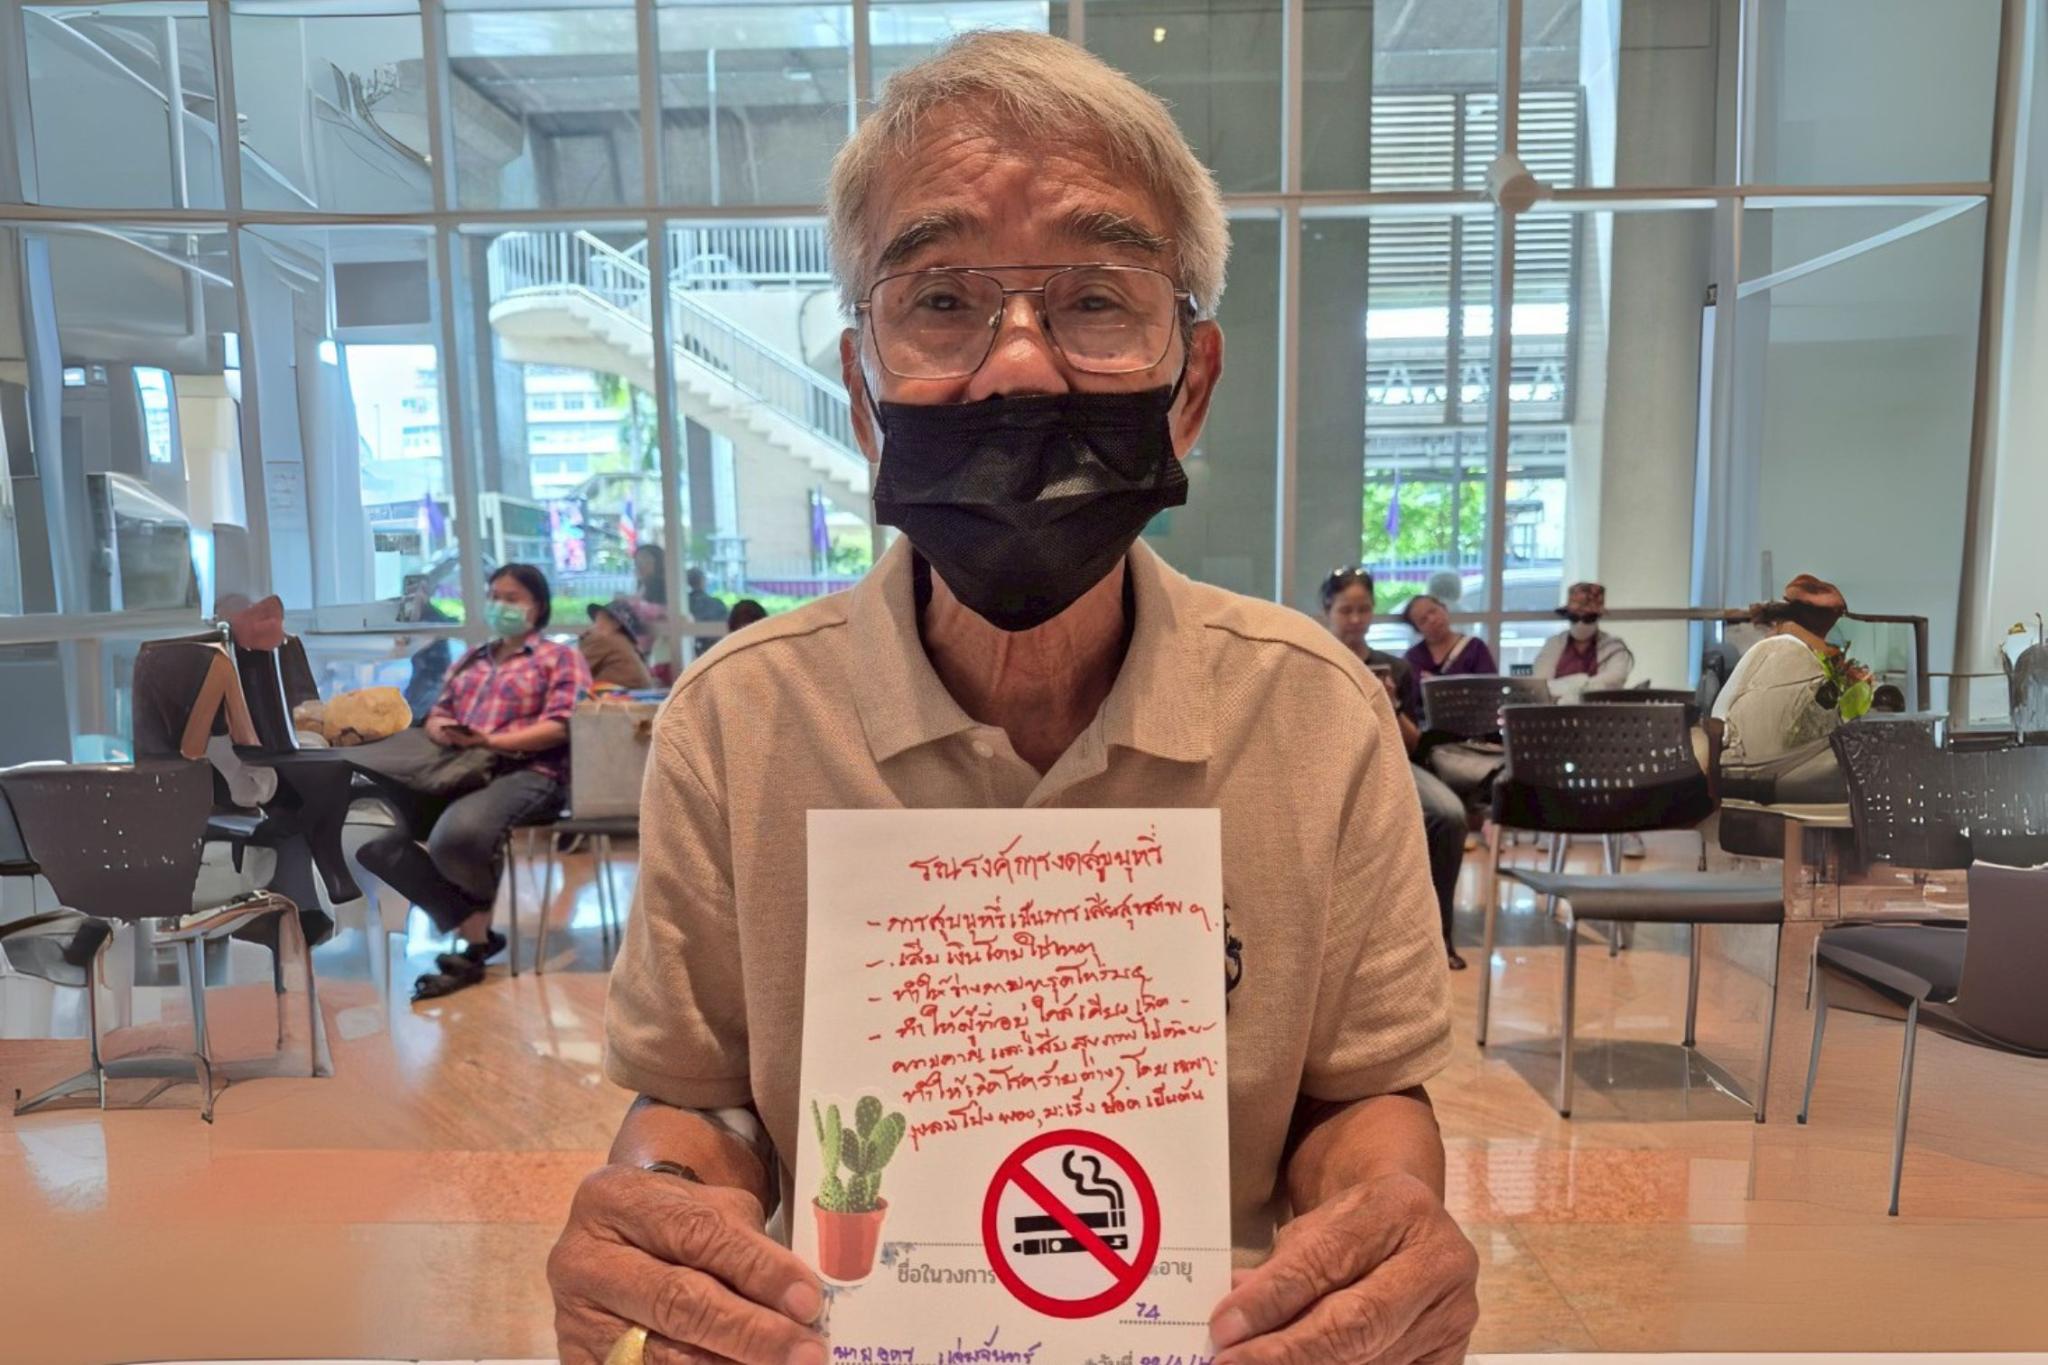 รณรงค์การงดสูบบุหรี่
- การสูบบุหรี่เป็นการเสียสุขภาพ ๆ
- เสียเงินโดยใช่เหตุ
- ทำให้ร่างกายทรุดโทรม ๆ
- ทำให้ผู้ที่อยู่ใกล้เคียงเกิด
ความคาญและเสียสุขภาพไปด้วย
ทำให้เกิดโรคร้ายต่างๆ โดยเฉพาะ
ถุงลมโป่งพอง, มะเร็งปอด เป็นต้น
ชื่อในวงการ อายุ
74
นาย
วันที่